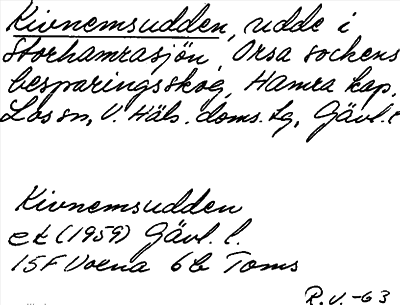 Kivnemsudden, udde i
Storhamrasjön, Orsa sockens
besparingsskog, Hamra kap.
Los sn, V. Häls. doms. tg, Gävl. l
Kivnemsudden
ek (1959) Gävl. l.
15F Voxna 6b Toms
R.V.-63